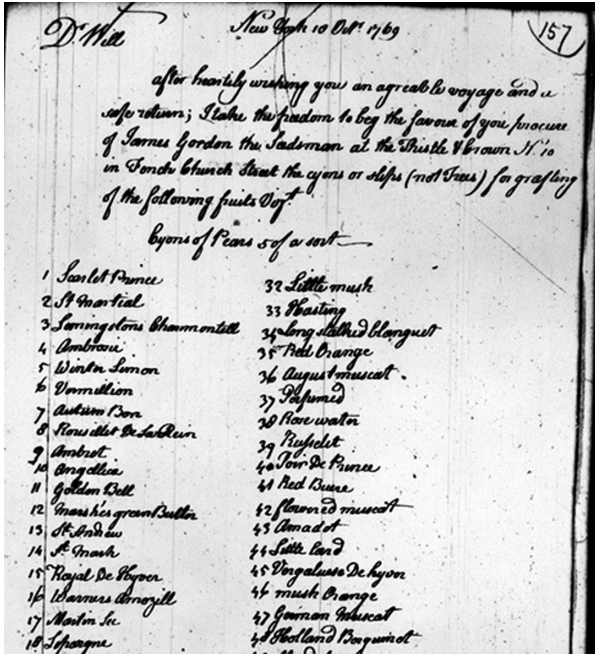 157
Dr Will
New York 10 Octr 1769
after heartily wishing you an agreable voyage and a
safe return; I take the freedom to beg the favour of you procure
of James Gordon the Seedsman at the Thistle & Crown No 10
in Fench Church Street the cyons or slips (not Trees) for grafting
of the following fruits Vizt
Cyons of Pears 5 of a sort
1 Scarlet Prince
2 St Martial
3 Lemingstons Chaumontell
4 Ambrosie
5 Winter Limon
6 Vermillion
7 Autum Bon
8 Rousillet De La Rein
9 Ambret
10 Angellica
11 Golden Bell
12 Marshes green Butter
13 St Andrew
14 St Mark
15 Royal De Hyver
16 Warners Amozill
17 Martin Sec
18 Lepargne
32 Little mush
33 Hasting
34 Long stalked blanquet
35 Red Orange
36 August muscat
37 Perfumed
38 Rose water
39 Russelet
40 Poir De Prince
41 Red Buere
42 flowered muscat
43 Amadot
44 Little Lard
45 Vergaluse De hyver
46 mush Orange
47 German Muscat
48 Holland Borguinot